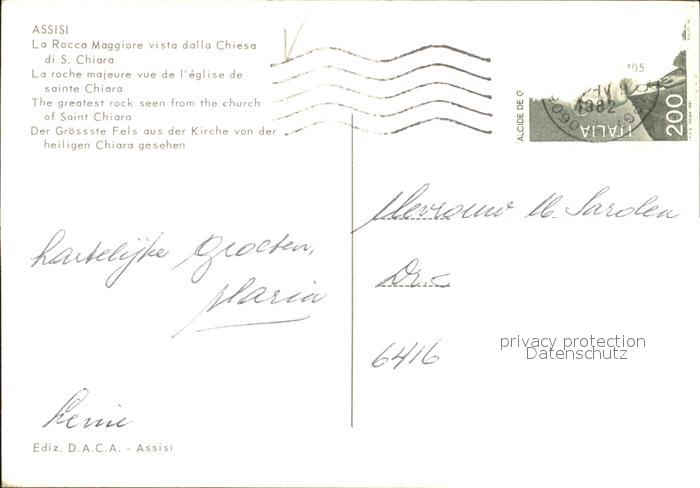 ASSISI
La Rocca Maggiore vista dalla Chiesa
di S. Chiara
La roche majeure vue de l'église de
sainte Chiara
The greatest rock seen from the church
of Saint Chiara
Der Grössste Fels aus der Kirche von der
heiligen Chiara gesehen
ALCIDE DE G
1982
ITALIA
200
Mevrouw M. Sarolea
Hartelijke Groeten,
Maria
Dr.
6416
privacy protection
Datenschutz
Ediz. D.A.C.A. - Assisi